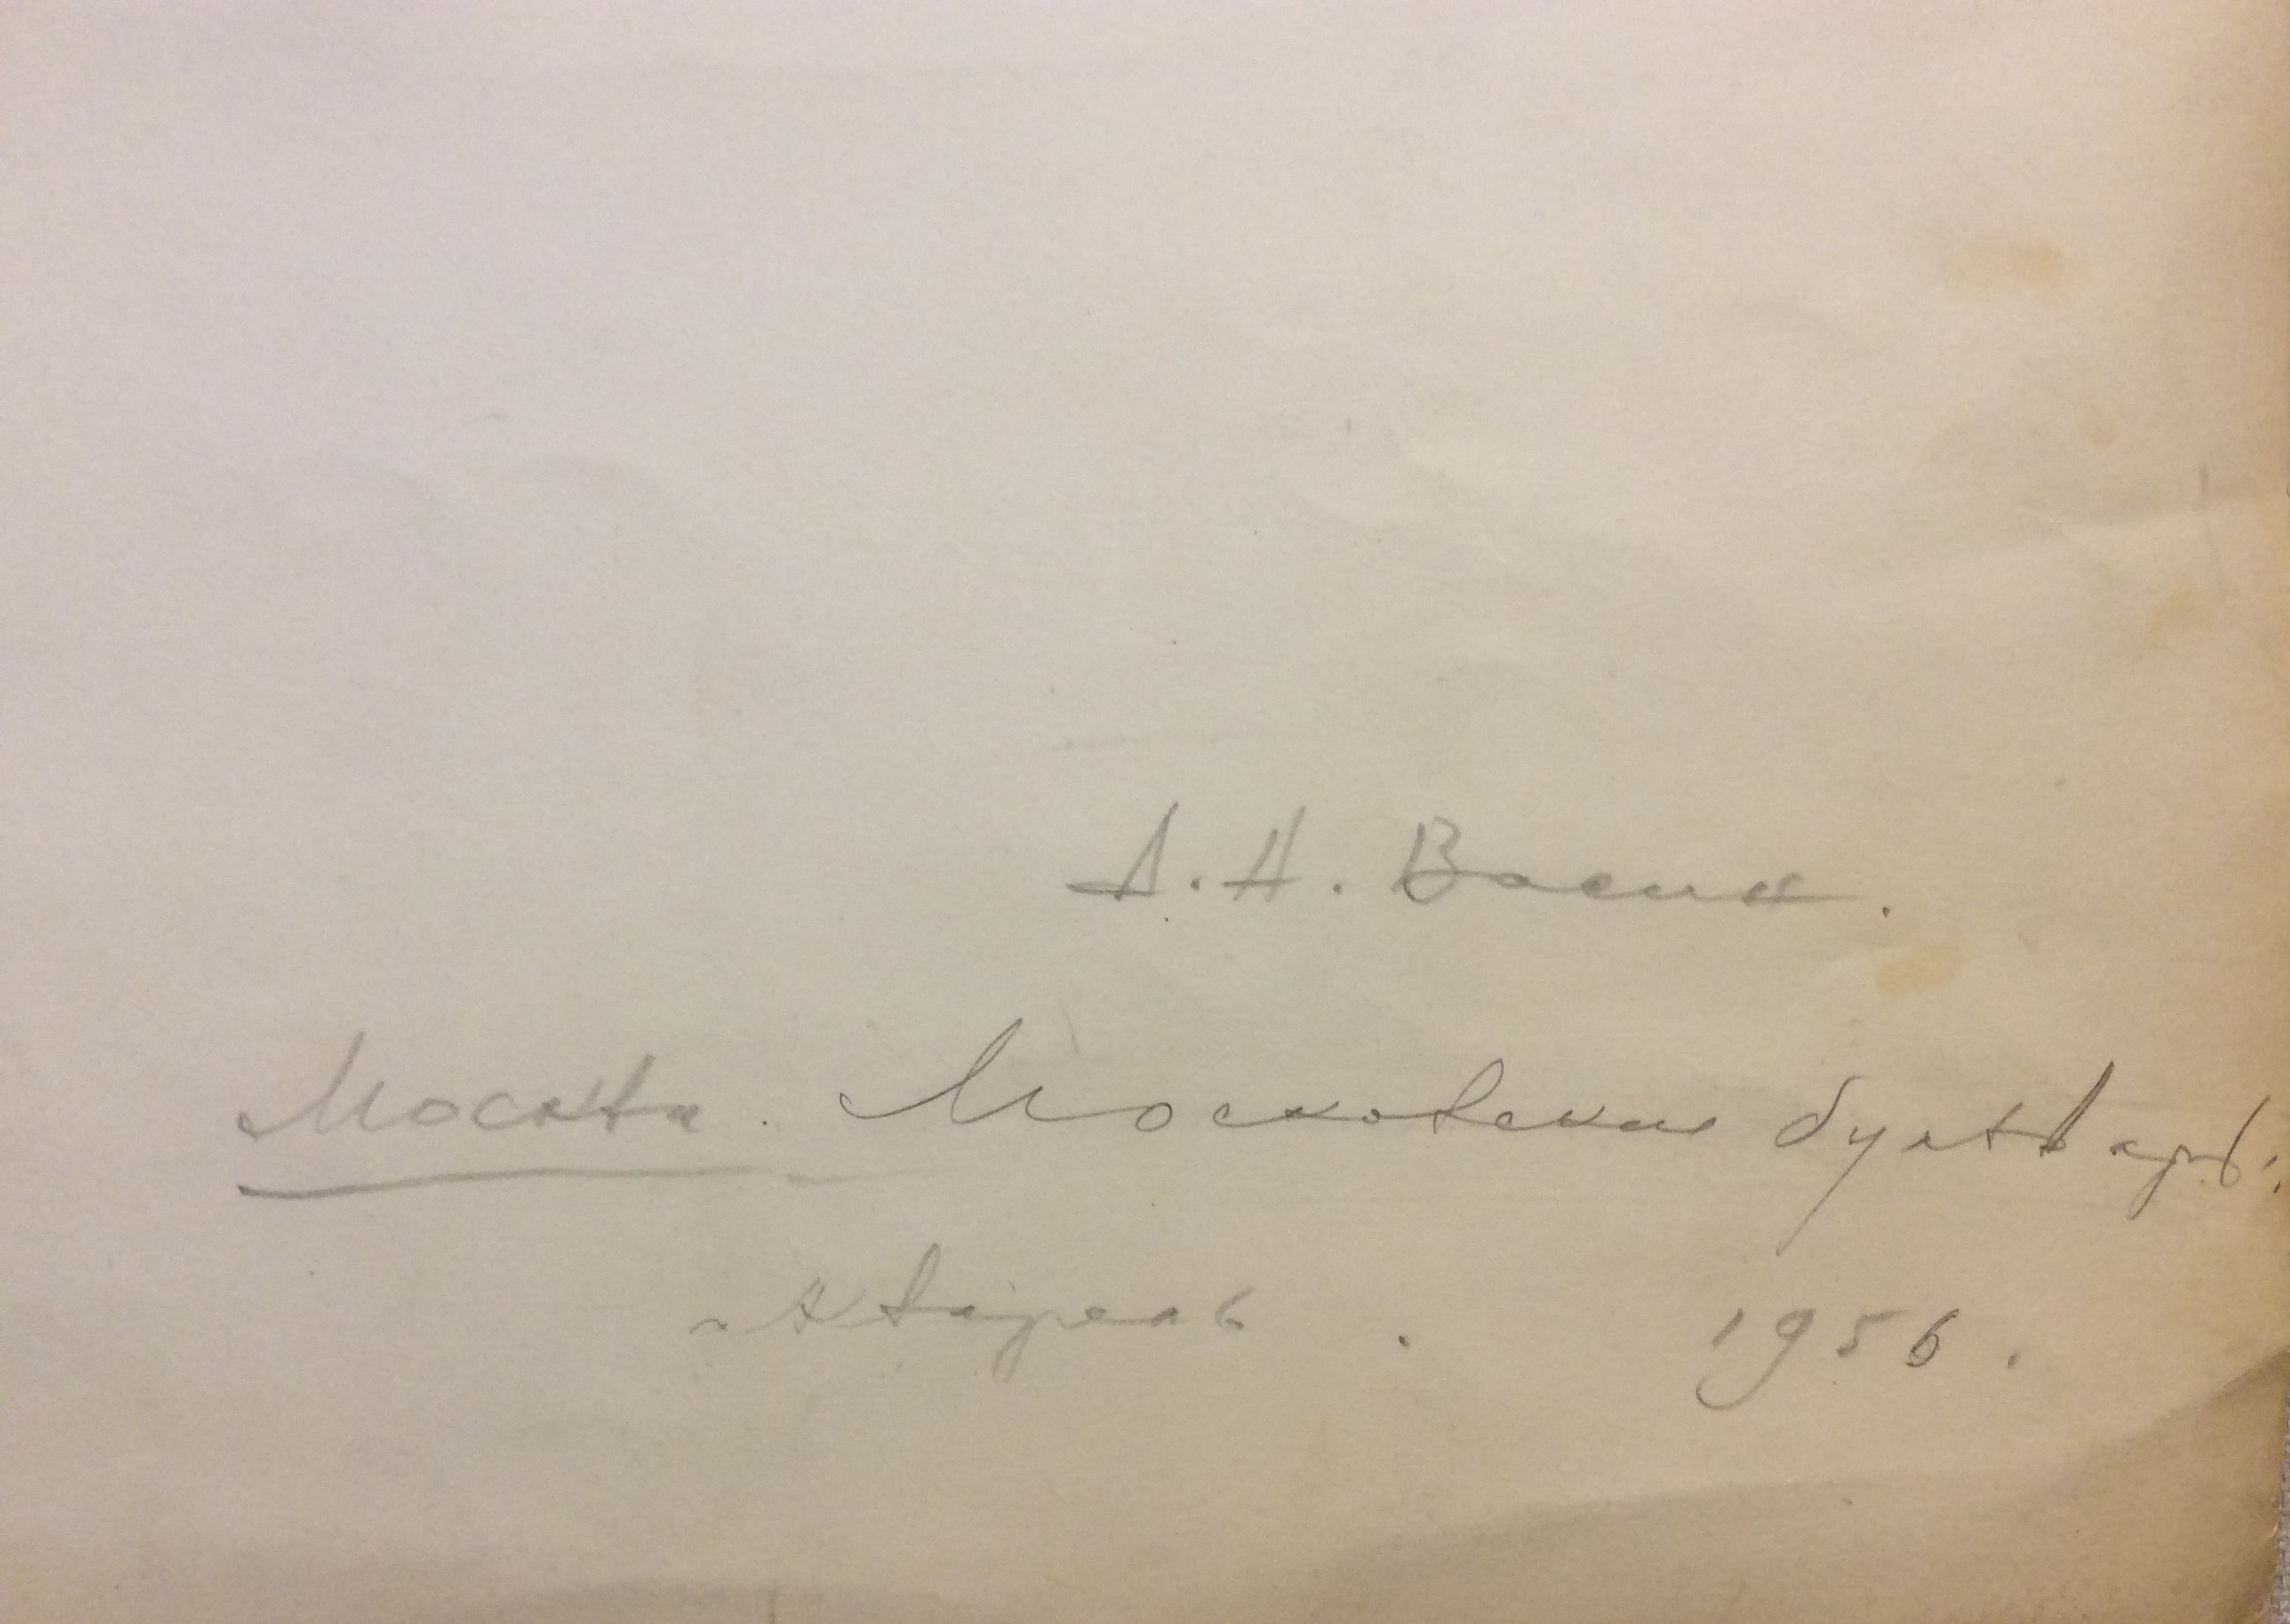 А. Н. Васин.
Москва. Московские бульвары.
Акварель. 1956.